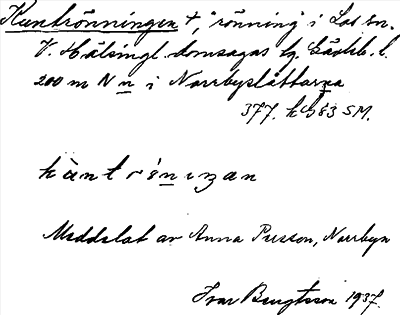 Kuntrönningen +, "rönning" i Los sn.
V. Hälsingl. domsagas tg. Gävleb. l.
200 m N n i Norrbyslåttarna
377. SM.
häntrön
Meddelat av Anna Persson, Norrbyn
Ivar Bengtsson 1937.